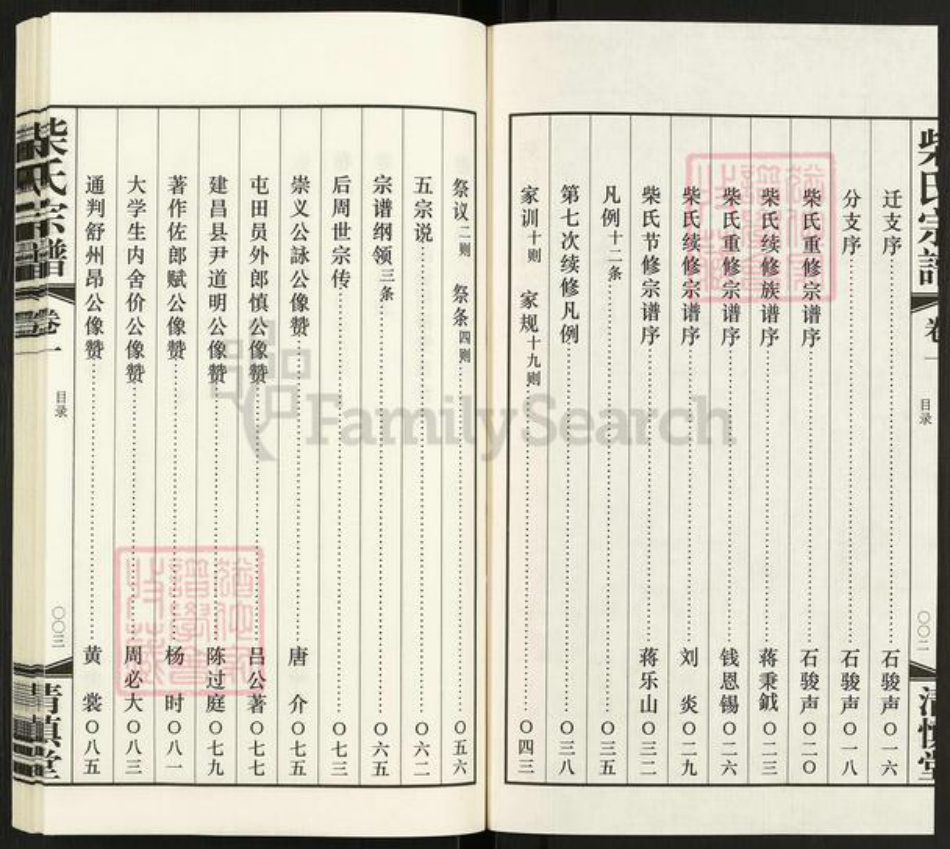 柴氏宗譜
卷一
目录
〇〇二
清慎堂
迁支序 石骏声 〇一六
分支序 石骏声 〇一八
柴氏重修宗谱序 石骏声 〇二〇
柴氏续修族谱序 蒋秉钺 〇二三
柴氏重修宗谱序 钱恩锡 〇二六
柴氏续修宗谱序 刘炎 〇二九
柴氏节修宗谱序 蒋乐山 〇三二
凡例十二条 〇三五
第七次续修凡例 〇三八
家训十则 家规十九则 〇四三
祭议二则 祭条四则 〇五六
五宗说 〇六二
宗谱纲领三条 〇六五
后周世宗传 〇七三
崇义公詠公像赞 唐介 〇七五
屯田员外郎慎公像赞 吕公著 〇七七
建昌县尹道明公像赞 陈过庭 〇七九
著作佐郎赋公像赞 杨时 〇八一
大学生内舍价公像赞 周必大 〇八三
通判舒州昂公像赞 黄裳 〇八五
柴氏宗譜
卷一
目录
〇〇三
清慎堂
FamilySearch